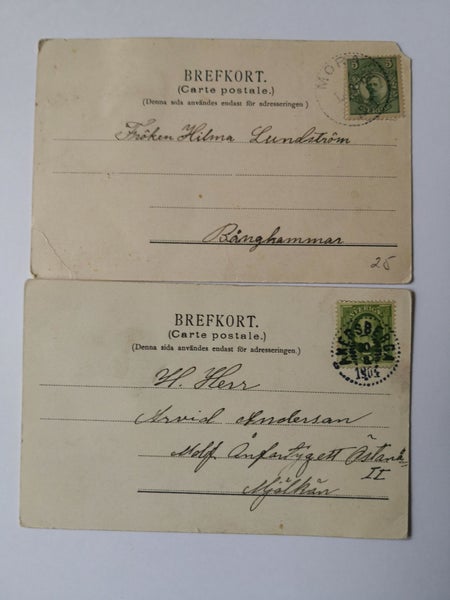 BREFKORT.
(Carte postale.)
(Denna sida användes endast för adresseringen.)
5 5
Fröken Hilma Lundström
Bånghammar
25
BREFKORT.
(Carte postale.)
(Denna sida användes endast för adresseringen.)
1904
H. Herr
Arvid Andersan
Ånfartygett Östanå
II
Mjölkön